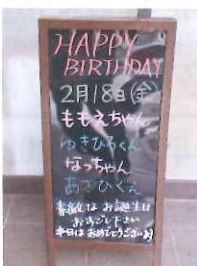 HAPPY
BIRTHDAY
2月18日(金)
ももえちゃん
ゆきひろくん
なっちゃん
あさひくん
素敵なお誕生日
お過ごし下さい
本日はおめでとうございます